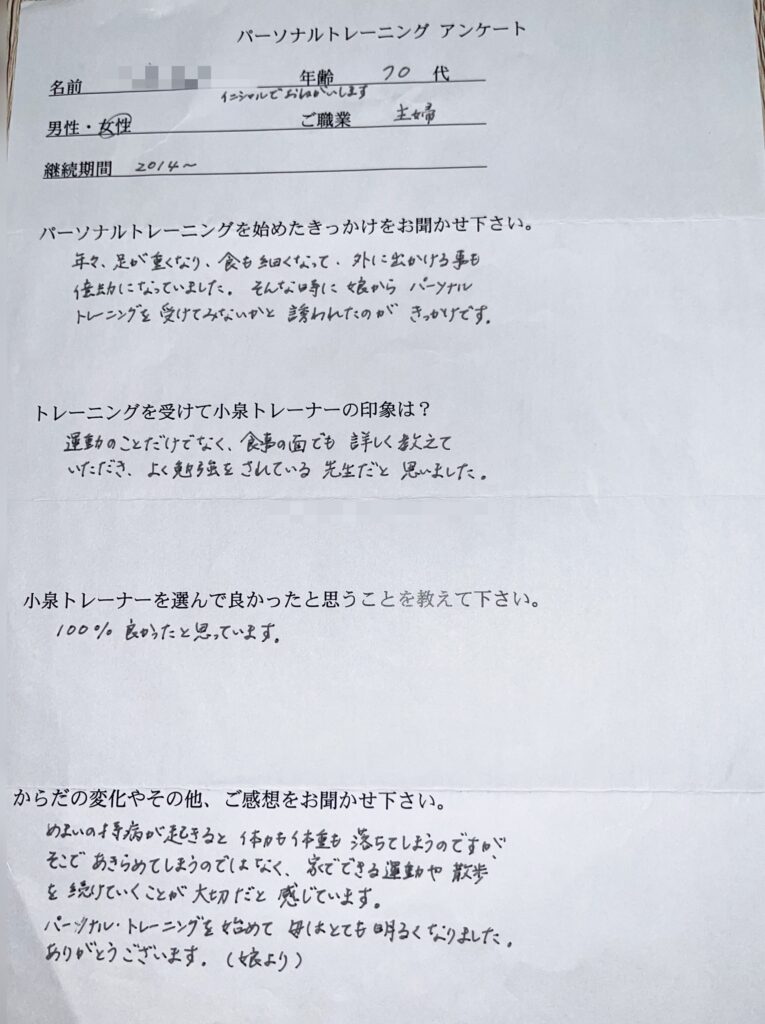 パーソナルトレーニング アンケート
名前 年齢 70 代
イニシャルでおねがいします
男性・女性 ご職業 主婦
継続期間 2014〜
パーソナルトレーニングを始めたきっかけをお聞かせ下さい。
年々、足が重くなり、食も細くなって、外に出かける事も
億劫になっていました。そんな時に娘からパーソナル
トレーニングを受けてみないかと誘われたのがきっかけです。
トレーニングを受けて小泉トレーナーの印象は？
運動のことだけでなく、食事の面でも詳しく教えて
いただき、よく勉強をされている先生だと思いました。
小泉トレーナーを選んで良かったと思うことを教えて下さい。
100% 良かったと思っています。
からだの変化やその他、ご感想をお聞かせ下さい。
めまいの持病が起きると体力も体重も落ちてしまうのですが、
そこであきらめてしまうのではなく、家でできる運動や散歩
を続けていくことが大切だと感じています。
パーソナル・トレーニングを始めて母はとても明るくなりました。
ありがとうございます。(娘より)